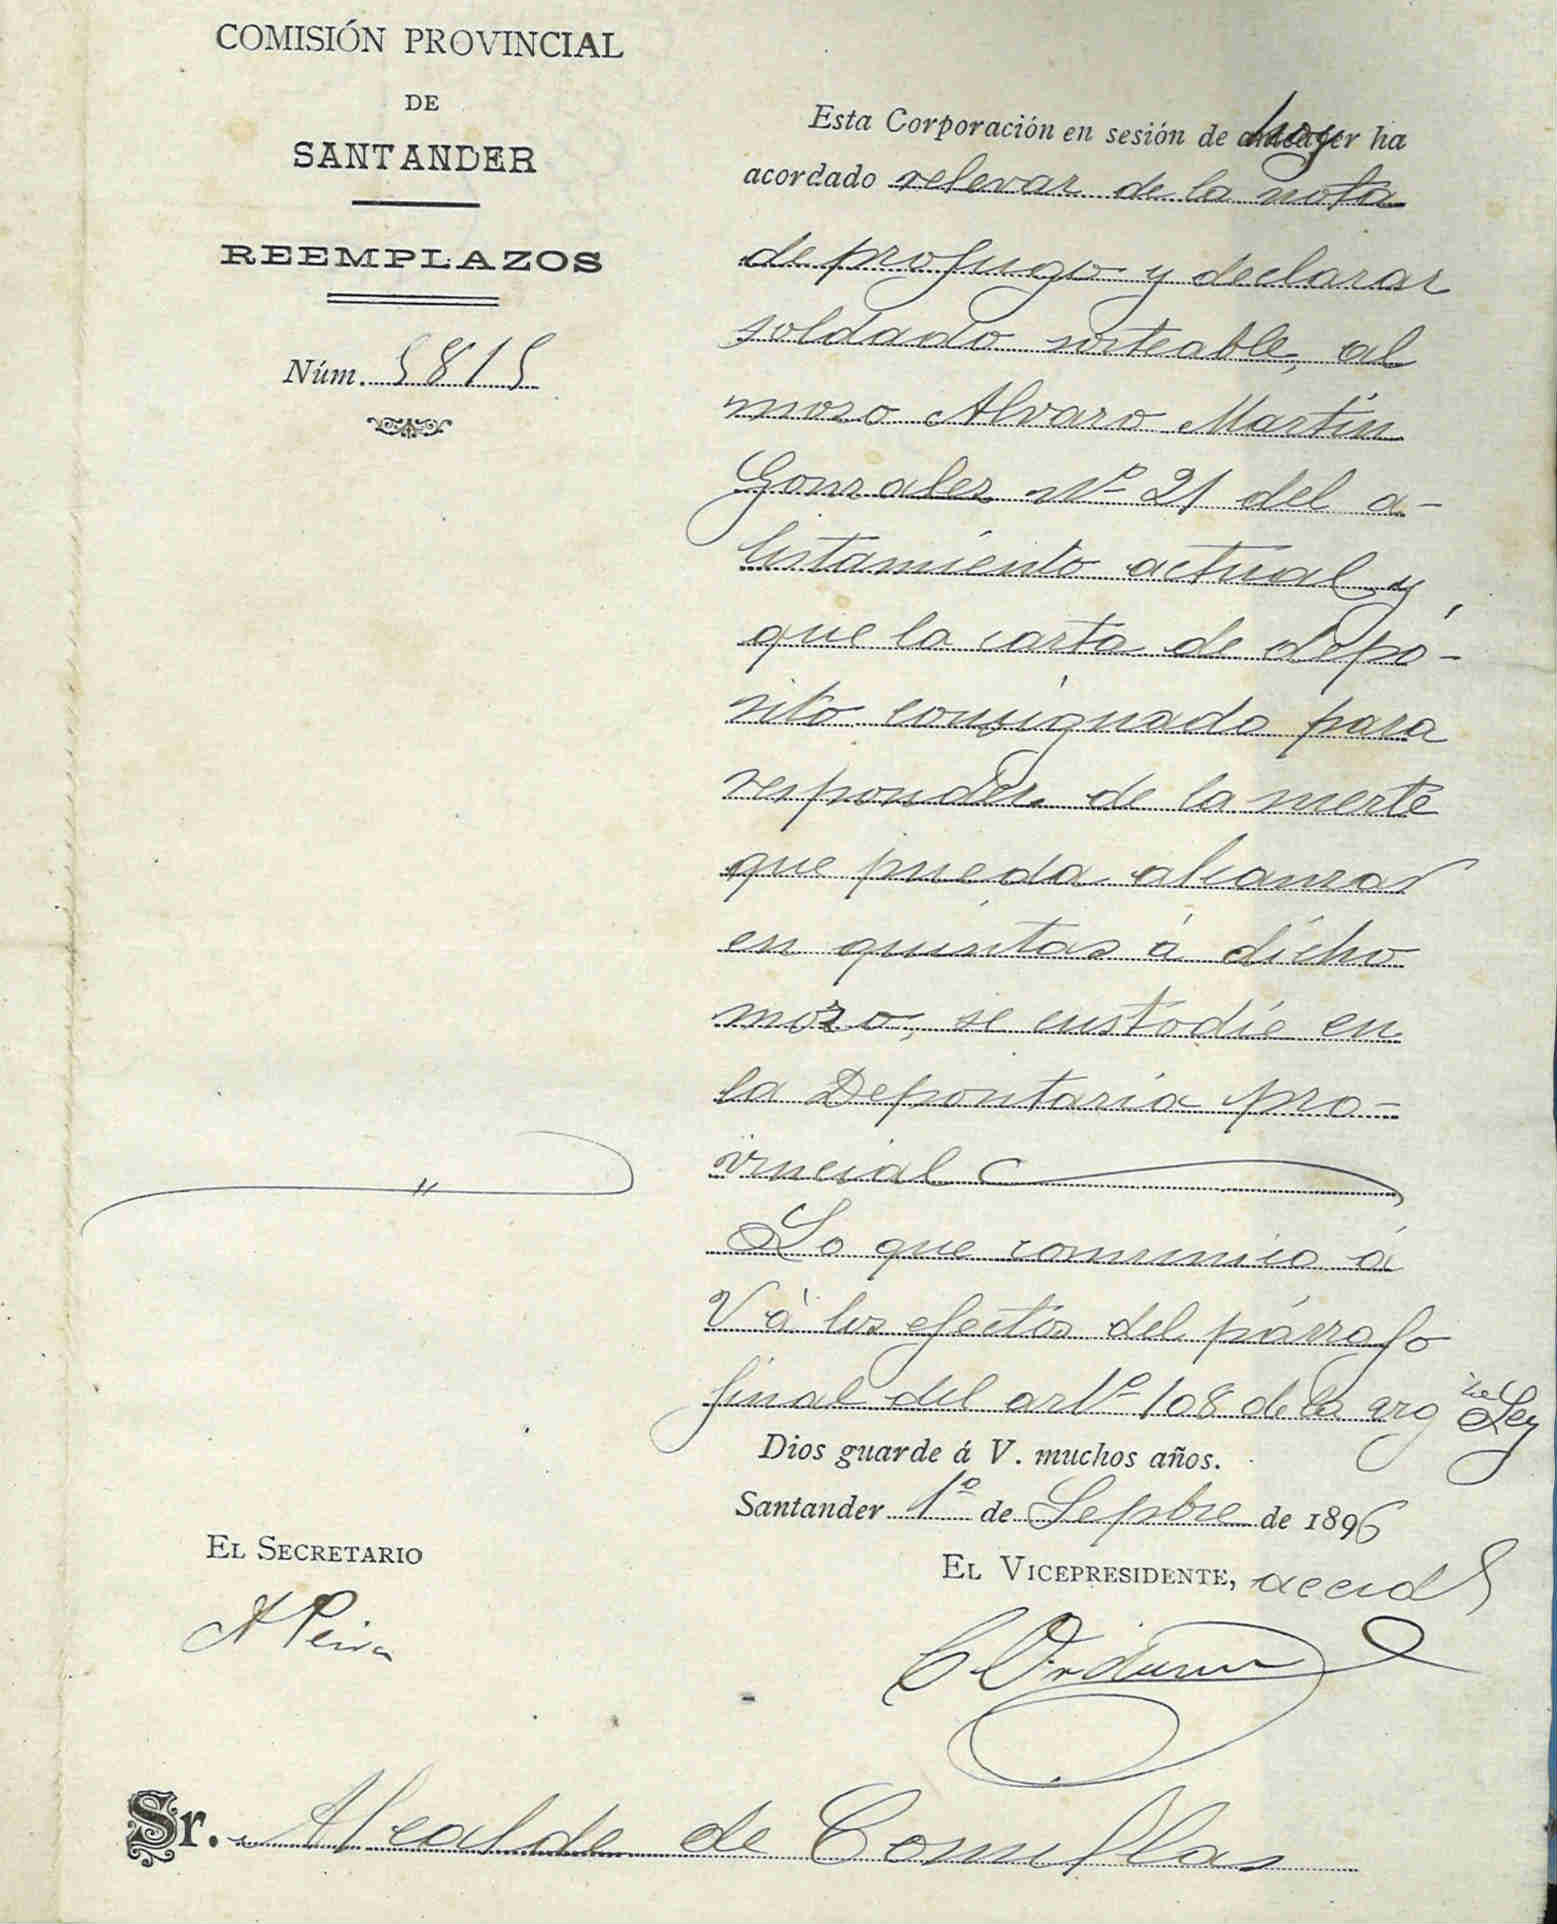 COMISIÓN PROVINCIAL
DE
SANTANDER
REEMPLAZOS
Núm. 5815
Esta Corporación en sesión de hoy ha
acordado relevar de la nota
de profugo y declarar
soldado sorteable, al
mozo Alvaro Martin
Gonzalez nº 21 del a-
listamiento actual y
que la carta de depó-
sito consignado para
responder de la suerte
que pueda alcanzar
en quintas á dicho
mozo, se custodie en
la Depositaria pro-
vincial
Lo que comunico á
V á los efectos del párrafo
final del artº 108 de la Ley
Dios guarde á V. muchos años.
Santander 1º de Sepbre de 1896
EL SECRETARIO
EL VICEPRESIDENTE, accidl
Sr. Alcalde de Comillas